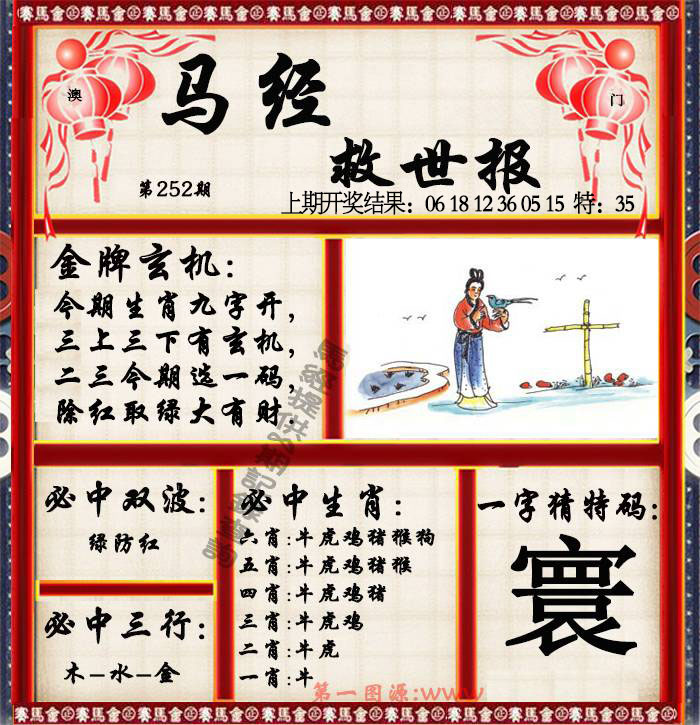 金馬會正賽馬會
澳
门
马经
救世报
第252期
上期开奖结果：06 18 12 36 05 15 特：35
金牌玄机：
今期生肖九字开，
三上三下有玄机，
二三今期选一码，
除红取绿大有财．
必中双波：
绿防红
必中三行：
木—水—金
必中生肖：
六肖:牛虎鸡猪猴狗
五肖:牛虎鸡猪猴
四肖:牛虎鸡猪
三肖:牛虎鸡
二肖:牛虎
一肖:牛
一字猜特码：
寰
第一图源:www